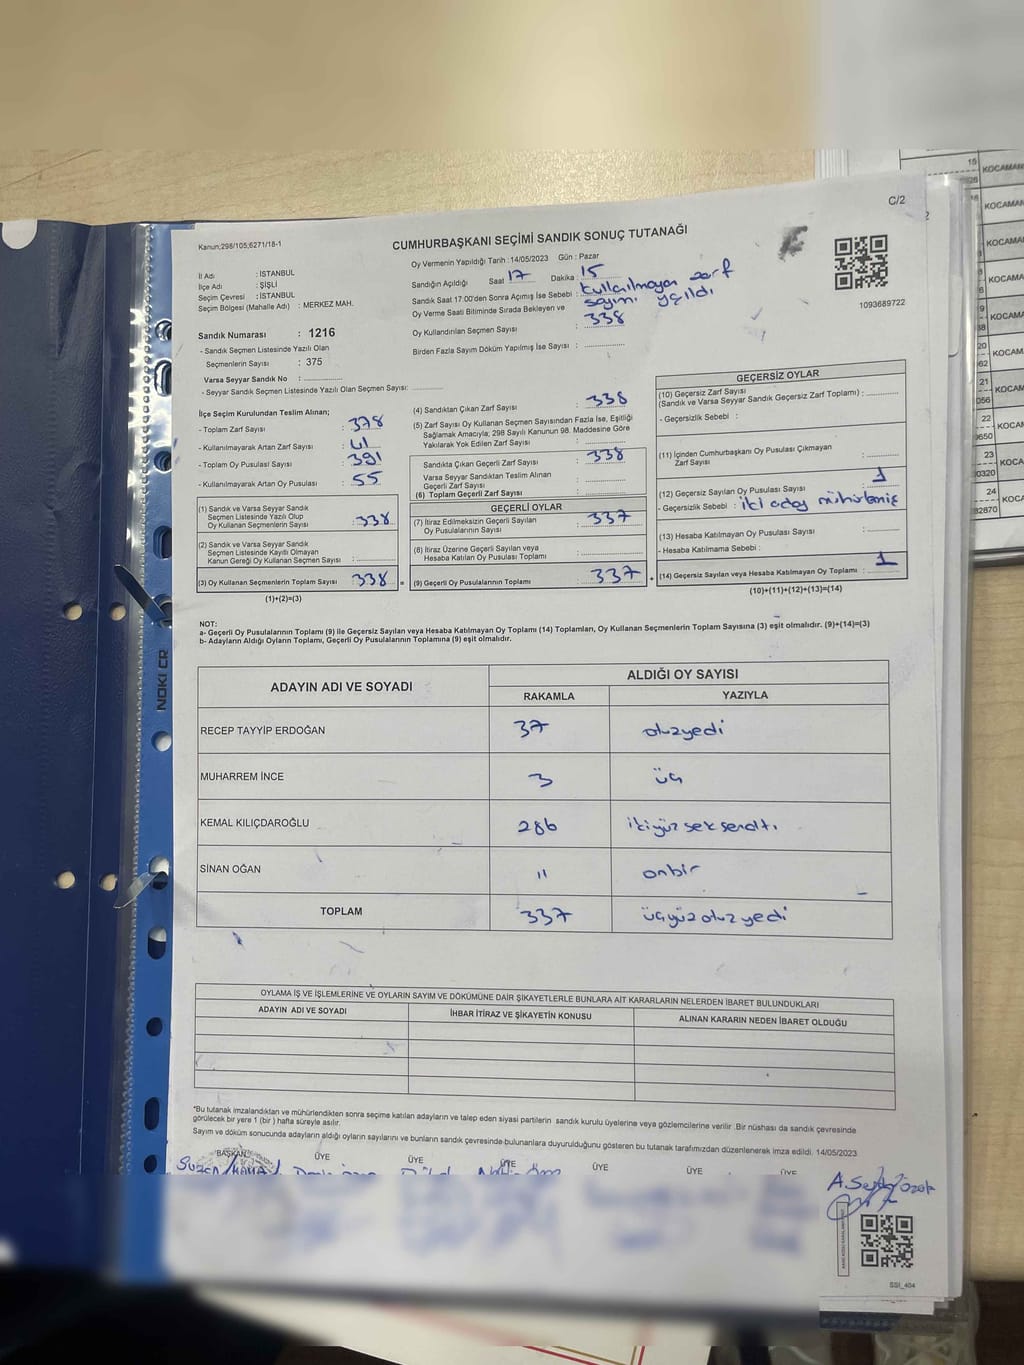 C/2
Kanun;298/105;6271/18-1
CUMHURBAŞKANI SEÇİMİ SANDIK SONUÇ TUTANAĞI
İl Adı : İSTANBUL
İlçe Adı : ŞİŞLİ
Seçim Çevresi : İSTANBUL
Seçim Bölgesi (Mahalle Adı) : MERKEZ MAH.
Sandık Numarası : 1216
- Sandık Seçmen Listesinde Yazılı Olan
Seçmenlerin Sayısı : 375
Varsa Seyyar Sandık No :
- Seyyar Sandık Seçmen Listesinde Yazılı Olan Seçmen Sayısı:
Oy Vermenin Yapıldığı Tarih : 14/05/2023 Gün : Pazar
Sandığın Açıldığı Saat 17 Dakika : 15
Sandık Saat 17.00'den Sonra Açılmış İse Sebebi : kullanılmayan zarf
sayımı yapıldı
Oy Verme Saati Bitiminde Sırada Bekleyen ve
Oy Kullandırılan Seçmen Sayısı : 338
Birden Fazla Sayım Döküm Yapılmış İse Sayısı :
1093689722
İlçe Seçim Kurulundan Teslim Alınan;
- Toplam Zarf Sayısı : 378
- Kullanılmayarak Artan Zarf Sayısı : 41
- Toplam Oy Pusulası Sayısı : 391
- Kullanılmayarak Artan Oy Pusulası : 55
(1) Sandık ve Varsa Seyyar Sandık
Seçmen Listesinde Yazılı Olup
Oy Kullanan Seçmenlerin Sayısı : 338
(2) Sandık ve Varsa Seyyar Sandık
Seçmen Listesinde Kayıtlı Olmayan
Kanun Gereği Oy Kullanan Seçmenlerin Sayısı :
(3) Oy Kullanan Seçmenlerin Toplam Sayısı : 338 =
(1)+(2)=(3)
(4) Sandıktan Çıkan Zarf Sayısı : 338
(5) Zarf Sayısı Oy Kullanan Seçmen Sayısından Fazla İse, Eşitliği
Sağlamak Amacıyla; 298 Sayılı Kanunun 98. Maddesine Göre
Yakılarak Yok Edilen Zarf Sayısı :
Sandıkta Çıkan Geçerli Zarf Sayısı : 338
Varsa Seyyar Sandıktan Teslim Alınan
Geçerli Zarf Sayısı :
(6) Toplam Geçerli Zarf Sayısı :
GEÇERLİ OYLAR
(7) İtiraz Edilmeksizin Geçerli Sayılan
Oy Pusulalarının Sayısı : 337
(8) İtiraz Üzerine Geçerli Sayılan veya
Hesaba Katılan Oy Pusulası Toplamı :
(9) Geçerli Oy Pusulalarının Toplamı : 337 +
GEÇERSİZ OYLAR
(10) Geçersiz Zarf Sayısı
(Sandık ve Varsa Seyyar Sandık Geçersiz Zarf Toplamı) :
- Geçersizlik Sebebi :
(11) İçinden Cumhurbaşkanı Oy Pusulası Çıkmayan
Zarf Sayısı :
(12) Geçersiz Sayılan Oy Pusulası Sayısı : 1
- Geçersizlik Sebebi : iki aday mühürlemiş
(13) Hesaba Katılmayan Oy Pusulası Sayısı :
- Hesaba Katılmama Sebebi :
(14) Geçersiz Sayılan veya Hesaba Katılmayan Oy Toplamı : 1
(10)+(11)+(12)+(13)=(14)
NOT:
a- Geçerli Oy Pusulalarının Toplamı (9) ile Geçersiz Sayılan veya Hesaba Katılmayan Oy Toplamı (14) Toplamları, Oy Kullanan Seçmenlerin Toplam Sayısına (3) eşit olmalıdır. (9)+(14)=(3)
b- Adayların Aldığı Oyların Toplamı, Geçerli Oy Pusulalarının Toplamına (9) eşit olmalıdır.
ADAYIN ADI VE SOYADI ALDIĞI OY SAYISI
RAKAMLA YAZIYLA
RECEP TAYYİP ERDOĞAN 37 otuzyedi
MUHARREM İNCE 3 üç
KEMAL KILIÇDAROĞLU 286 ikiyüz seksenaltı
SİNAN OĞAN 11 onbir
TOPLAM 337 üçyüzotuzyedi
OYLAMA İŞ VE İŞLEMLERİNE VE OYLARIN SAYIM VE DÖKÜMÜNE DAİR ŞİKAYETLERLE BUNLARA AİT KARARLARIN NELERDEN İBARET BULUNDUKLARI
ADAYIN ADI VE SOYADI İHBAR İTİRAZ VE ŞİKAYETİN KONUSU ALINAN KARARIN NEDEN İBARET OLDUĞU
*Bu tutanak imzalandıktan ve mühürlendikten sonra seçime katılan adayların ve talep eden siyasi partilerin sandık kurulu üyelerine veya gözlemcilerine verilir .Bir nüshası da sandık çevresinde
görülecek bir yere 1 (bir ) hafta süreyle asılır.
Sayım ve döküm sonucunda adayların aldığı oyların sayılarını ve bunların sandık çevresinde bulunanlara duyurulduğunu gösteren bu tutanak tarafımızdan düzenlenerek imza edildi. 14/05/2023
BAŞKAN ÜYE ÜYE ÜYE ÜYE ÜYE ÜYE
SSI_404
NOKI CR
KOCAMAN